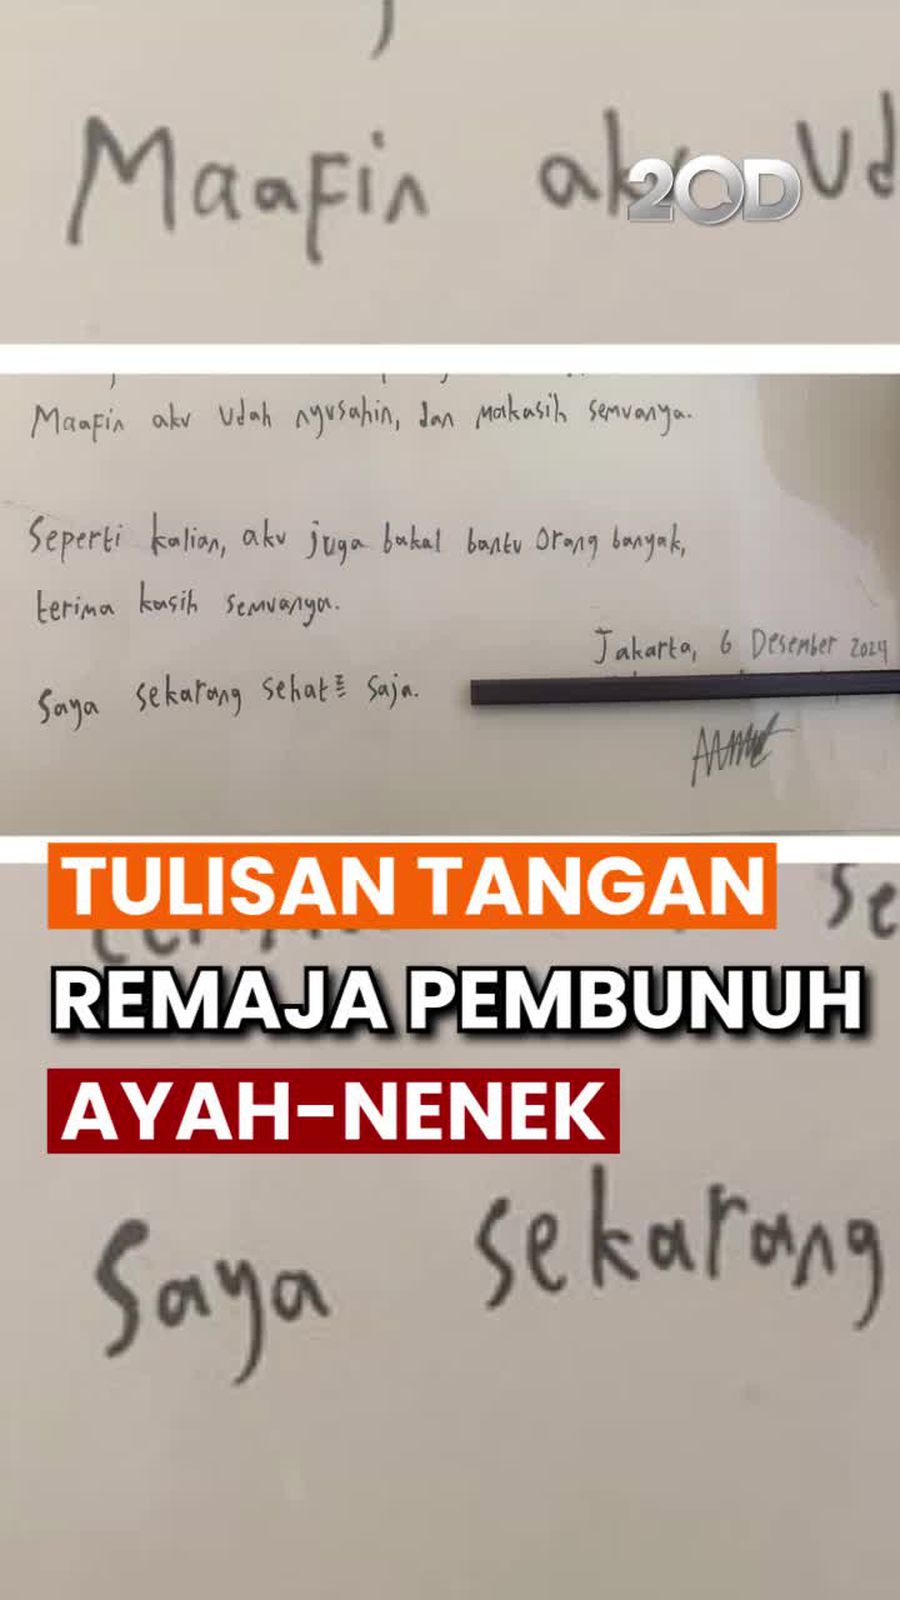 Maafin aku Ud
20D
Maafin aku Udah nyusahin, dan makasih semuanya.
Seperti kalian, aku juga bakal bantu orang banyak,
terima kasih semuanya.
Jakarta, 6 Desember 2024
Saya sekarang sehat² saja.
TULISAN TANGAN
REMAJA PEMBUNUH
AYAH-NENEK
Se
Saya sekarang